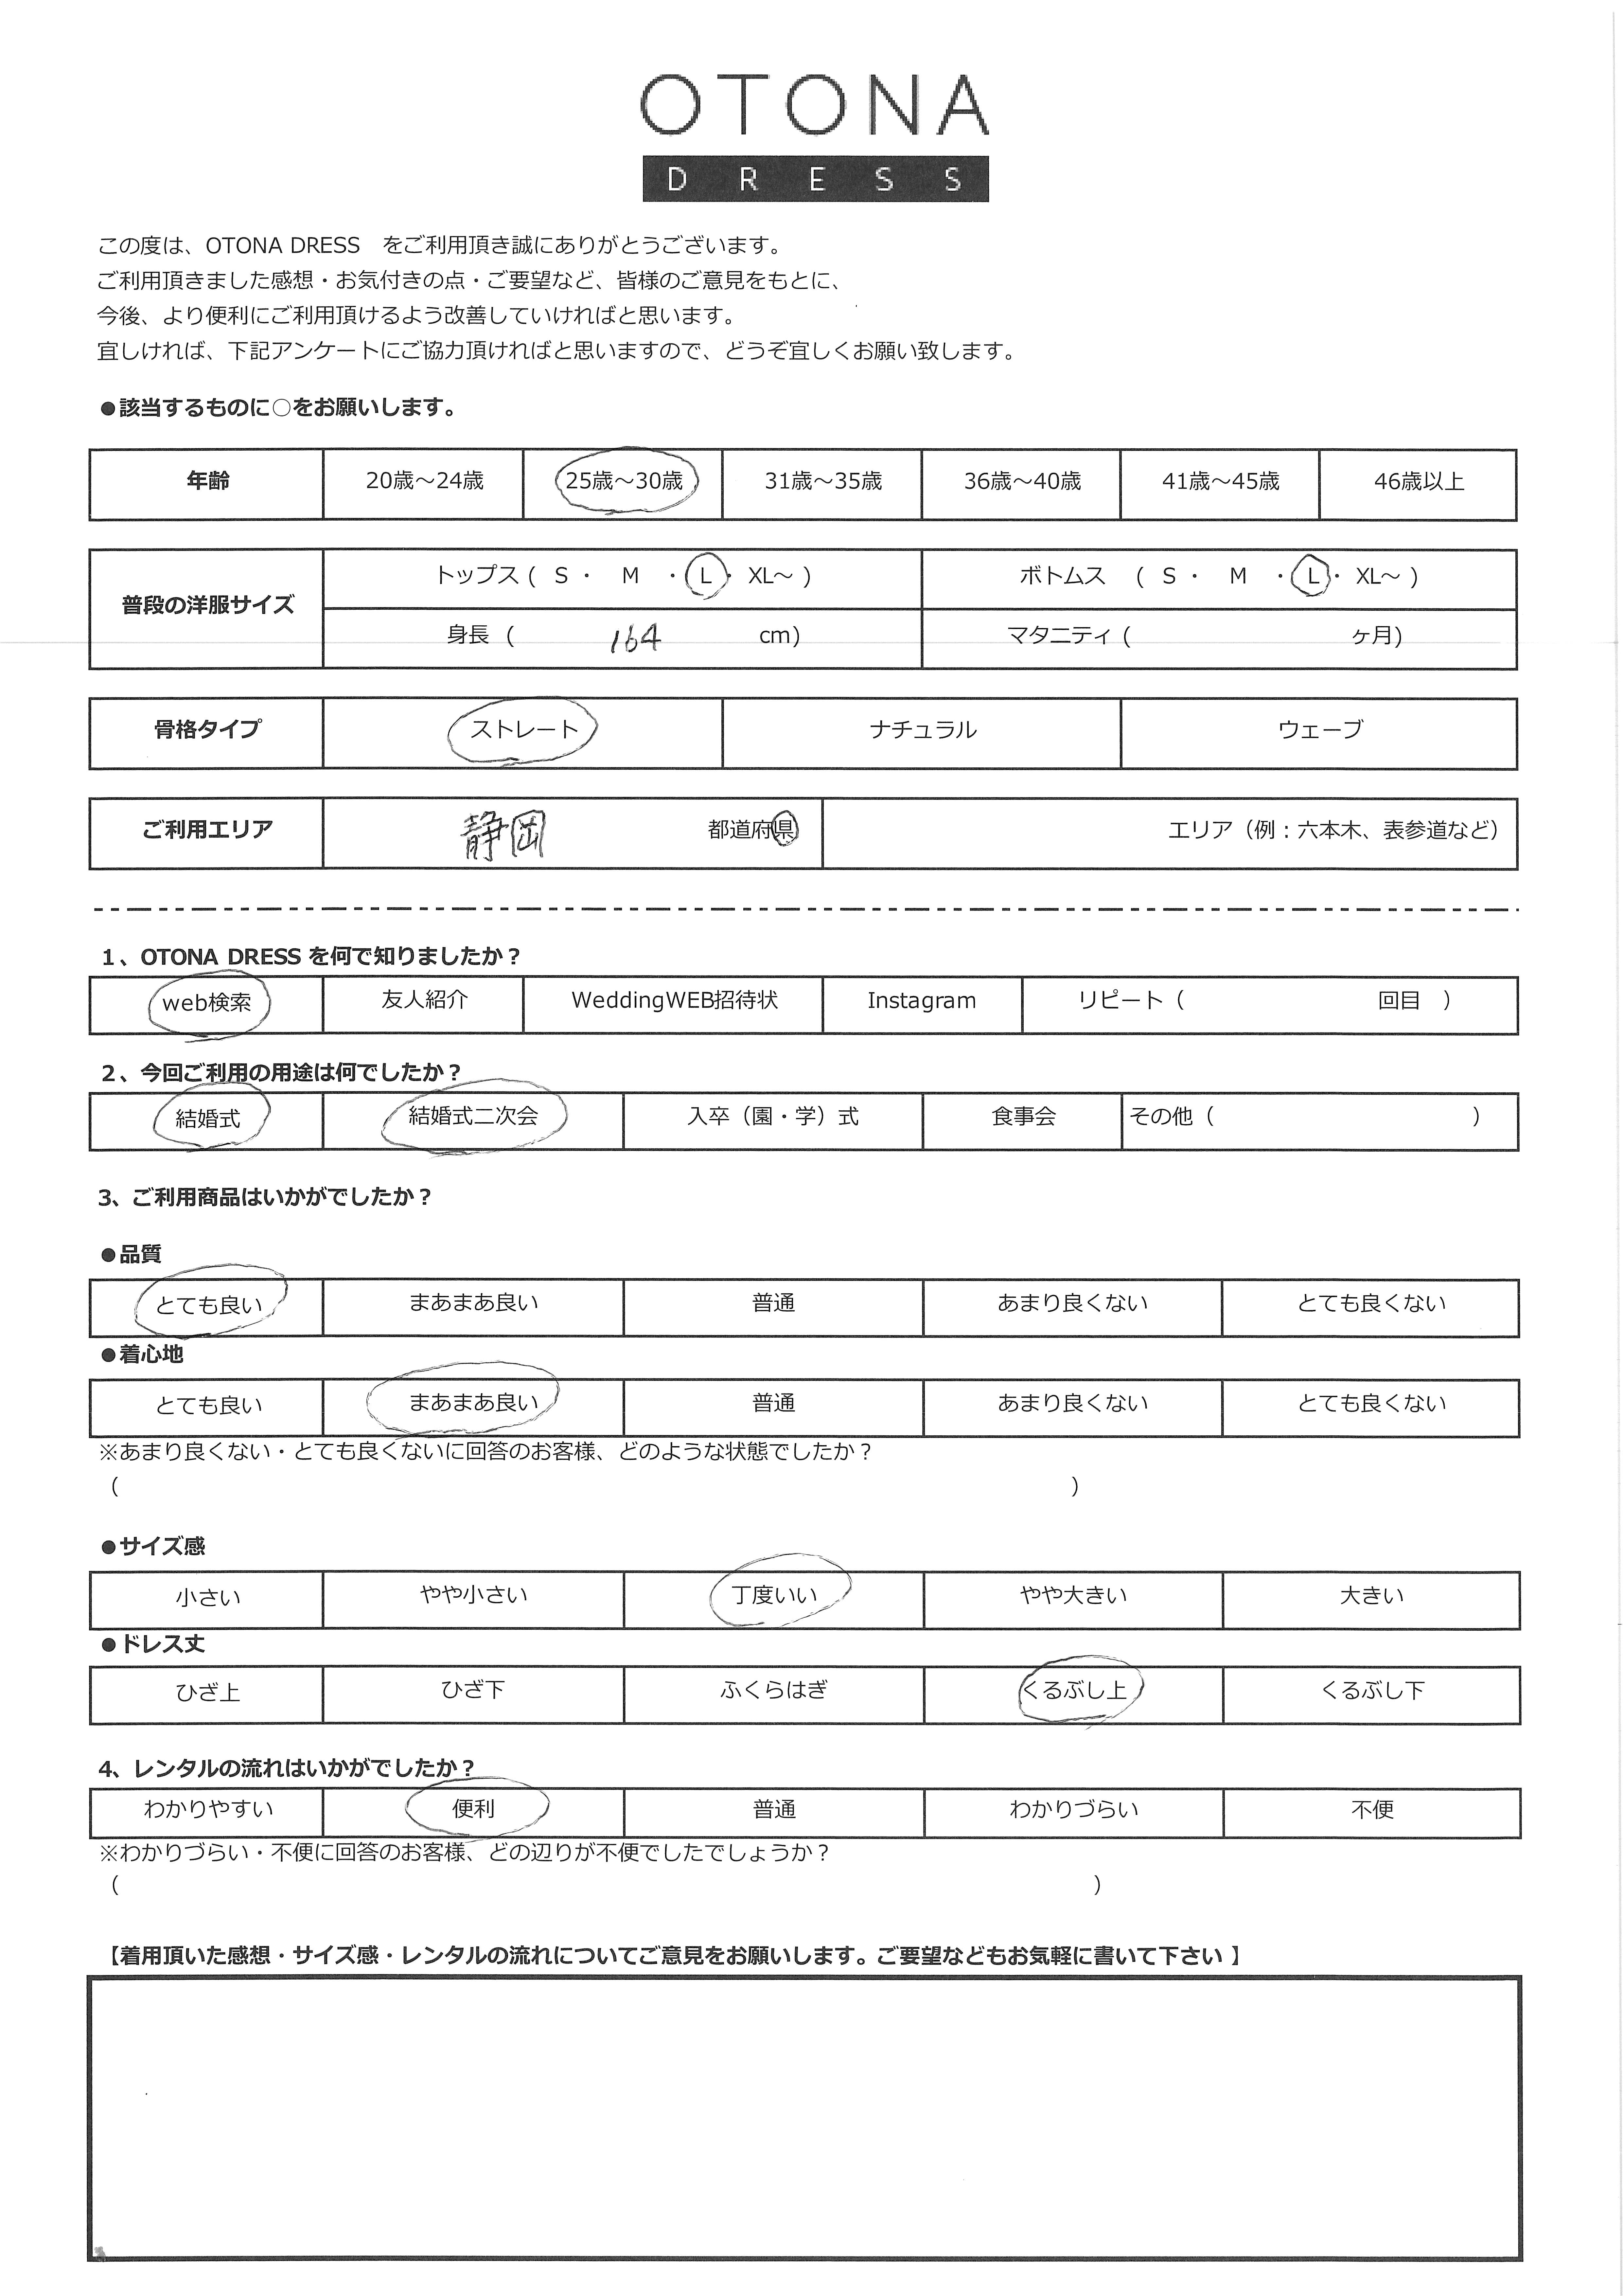 OTONA
DRESS
この度は、OTONA DRESS　をご利用頂き誠にありがとうございます。
ご利用頂きました感想・お気付きの点・ご要望など、皆様のご意見をもとに、
今後、より便利にご利用頂けるよう改善していければと思います。
宜しければ、下記アンケートにご協力頂ければと思いますので、どうぞ宜しくお願い致します。
●該当するものに○をお願いします。
年齢 20歳～24歳 25歳～30歳 31歳～35歳 36歳～40歳 41歳～45歳 46歳以上
普段の洋服サイズ
トップス ( S ・ M ・ L ・ XL～ ) ボトムス ( S ・ M ・ L ・ XL～ )
身長 ( 164 cm) マタニティ ( ヶ月)
骨格タイプ ストレート ナチュラル ウェーブ
ご利用エリア 静岡 都道府県 エリア（例：六本木、表参道など）
1、OTONA DRESS を何で知りましたか？
web検索 友人紹介 WeddingWEB招待状 Instagram リピート（ 回目 ）
2、今回ご利用の用途は何でしたか？
結婚式 結婚式二次会 入卒（園・学）式 食事会 その他（ ）
3、ご利用商品はいかがでしたか？
●品質
とても良い まあまあ良い 普通 あまり良くない とても良くない
●着心地
とても良い まあまあ良い 普通 あまり良くない とても良くない
※あまり良くない・とても良くないに回答のお客様、どのような状態でしたか？
（ ）
●サイズ感
小さい やや小さい 丁度いい やや大きい 大きい
●ドレス丈
ひざ上 ひざ下 ふくらはぎ くるぶし上 くるぶし下
4、レンタルの流れはいかがでしたか？
わかりやすい 便利 普通 わかりづらい 不便
※わかりづらい・不便に回答のお客様、どの辺りが不便でしたでしょうか？
（ ）
【着用頂いた感想・サイズ感・レンタルの流れについてご意見をお願いします。ご要望などもお気軽に書いて下さい 】